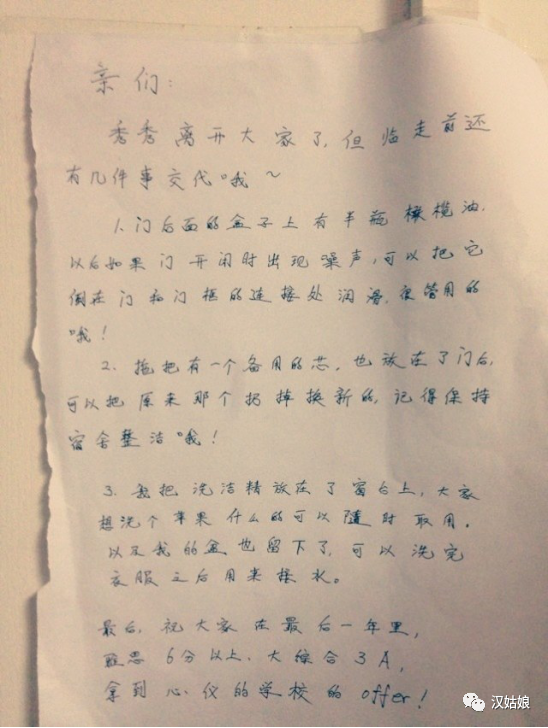 亲们：
秀秀离开大家了，但临走前还
有几件事交代哦～
1. 门后面的盒子上有半瓶橄榄油.
以后如果门开闭时出现噪声，可以把它
倒在门和门框的连接处润滑，很管用的
哦！
2. 拖把有一个备用的芯，也放在了门后，
可以把原来那个扔掉换新的，记得保持
宿舍整洁哦！
3. 我把洗洁精放在了窗台上，大家
想洗个苹果什么的可以随时取用。
以及我的盆也留下了，可以洗完
衣服之后用来接水。
最后，祝大家在最后一年里，
雅思6分以上，大综合3A，
拿到心仪的学校的offer！
汉姑娘